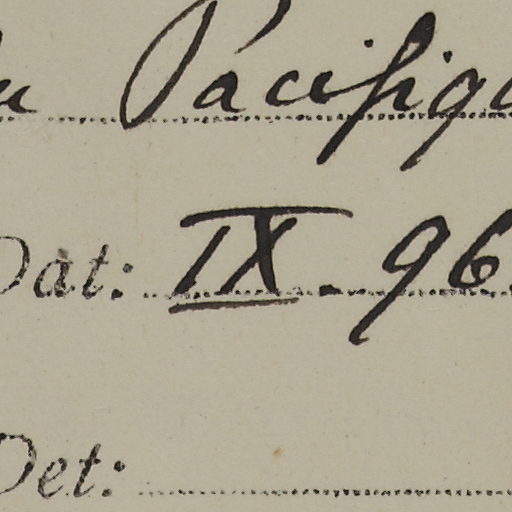 u Pacifiqu
Dat: IX. 96.
Det: